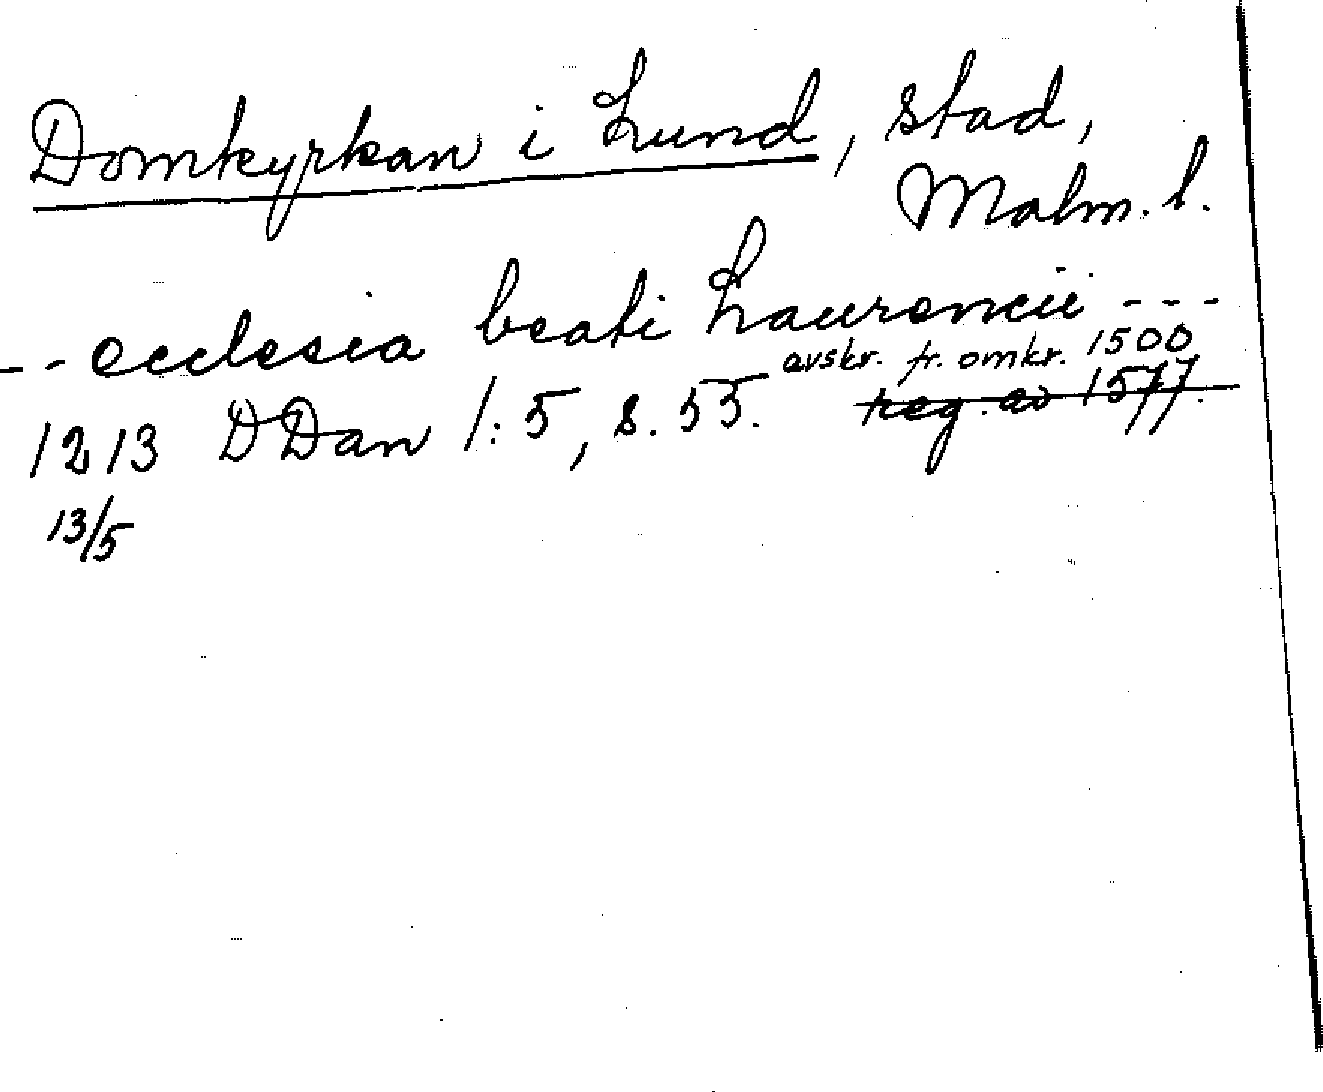 Domkyrkan i Lund, stad,
Malm. l.
--- ecclesia beati Laurencii ---
avskr. fr. omkr. 1500
1213 DDan 1:5, s. 55. reg. av 1577.
13/5